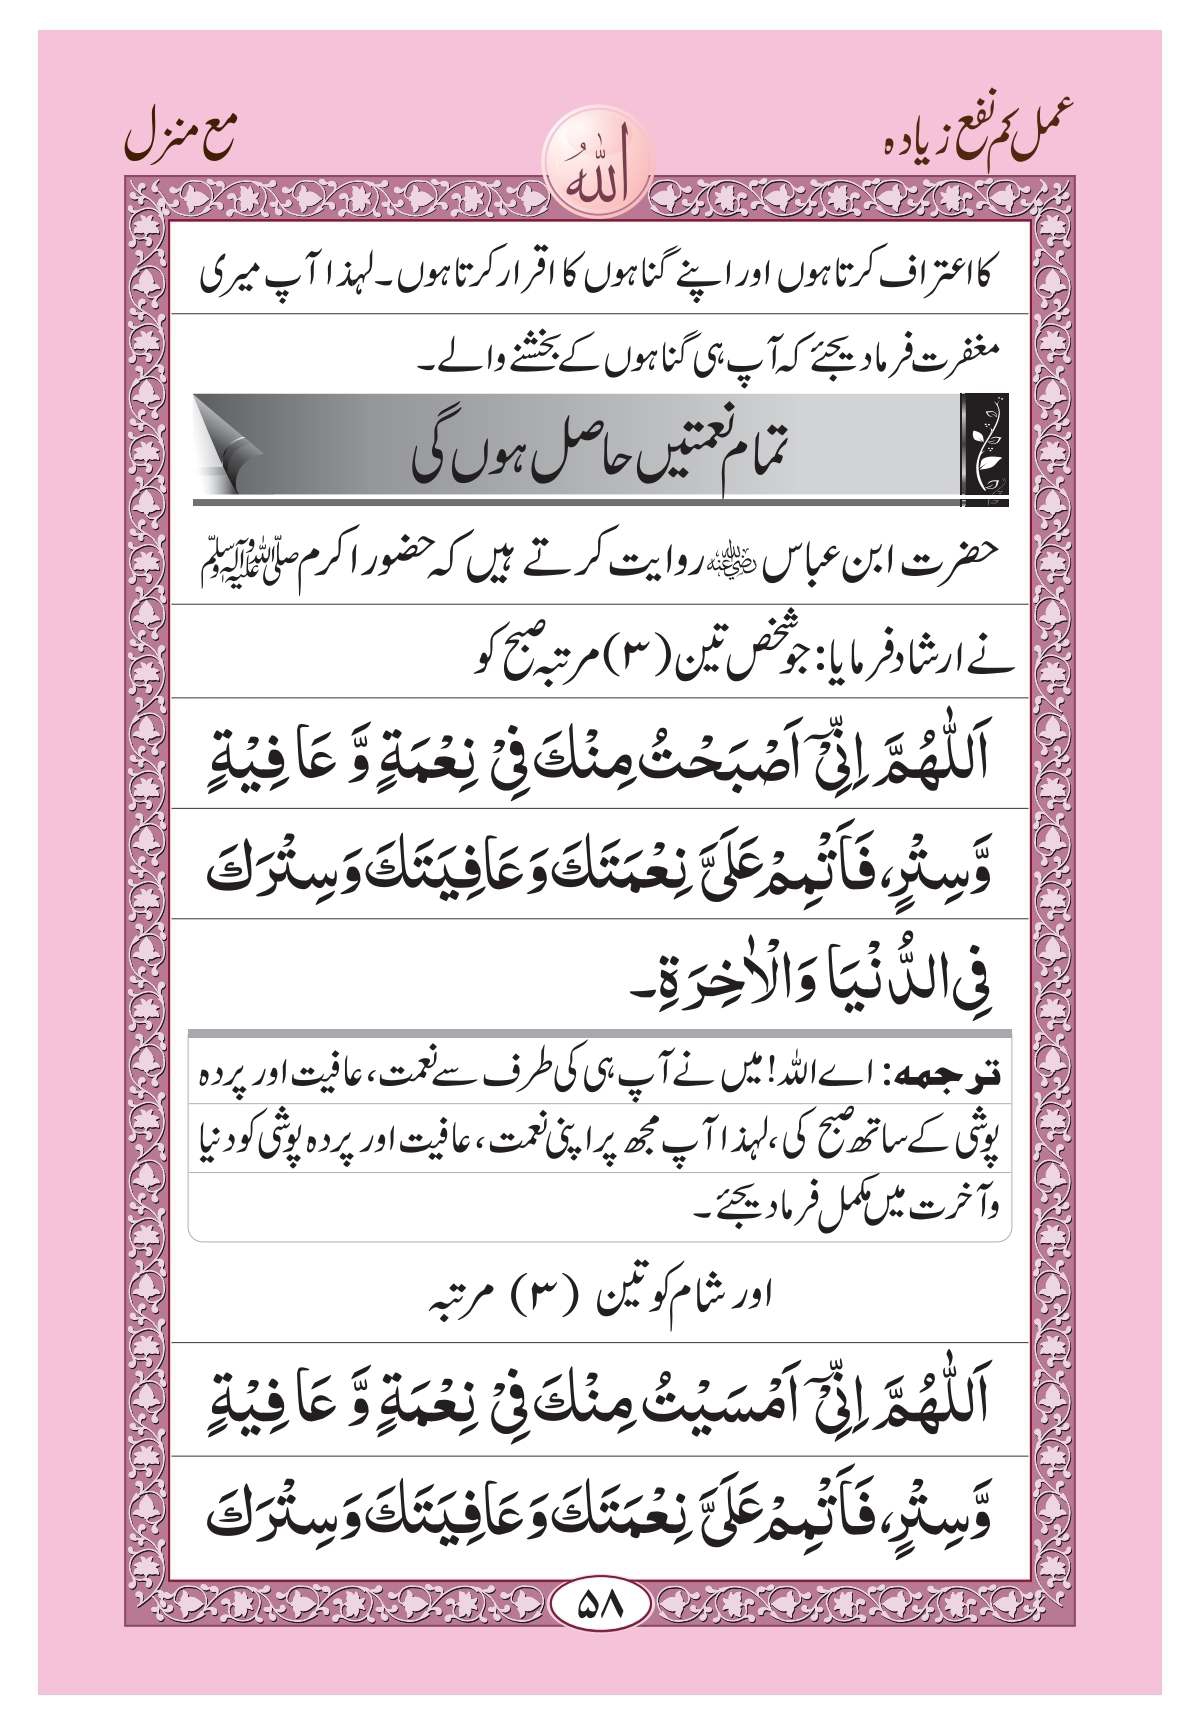 عمل کم نفع زیادہ
الله
مع منزل
کا اعتراف کرتا ہوں اور اپنے گناہوں کا اقرار کرتا ہوں۔ لہذا آپ میری
مغفرت فرما دیجئے کہ آپ ہی گناہوں کے بخشنے والے۔
تمام نعمتیں حاصل ہوں گی
حضرت ابن عباس رضی اللہ عنہ روایت کرتے ہیں کہ حضور اکرم صلی اللہ علیہ وآلہ وسلم
نے ارشاد فرمایا: جو شخص تین (۳) مرتبہ صبح کو
اَللّٰهُمَّ اِنِّيْٓ اَصْبَحْتُ مِنْكَ فِيْ نِعْمَةٍ وَّ عَافِيْةٍ
وَّسِتْرٍ، فَاَتْمِمْ عَلَيَّ نِعْمَتَكَ وَعَافِيَتَكَ وَسِتْرَكَ
فِي الدُّنْيَا وَالْاٰخِرَةِ۔
ترجمه: اے اللہ! میں نے آپ ہی کی طرف سے نعمت، عافیت اور پردہ
پوشی کے ساتھ صبح کی، لہذا آپ مجھ پر اپنی نعمت، عافیت اور پردہ پوشی کو دنیا
و آخرت میں مکمل فرما دیجئے۔
اور شام کو تین (۳) مرتبہ
اَللّٰهُمَّ اِنِّيْٓ اَمْسَيْتُ مِنْكَ فِيْ نِعْمَةٍ وَّ عَافِيْةٍ
وَّسِتْرٍ، فَاَتْمِمْ عَلَيَّ نِعْمَتَكَ وَعَافِيَتَكَ وَسِتْرَكَ
۵۸